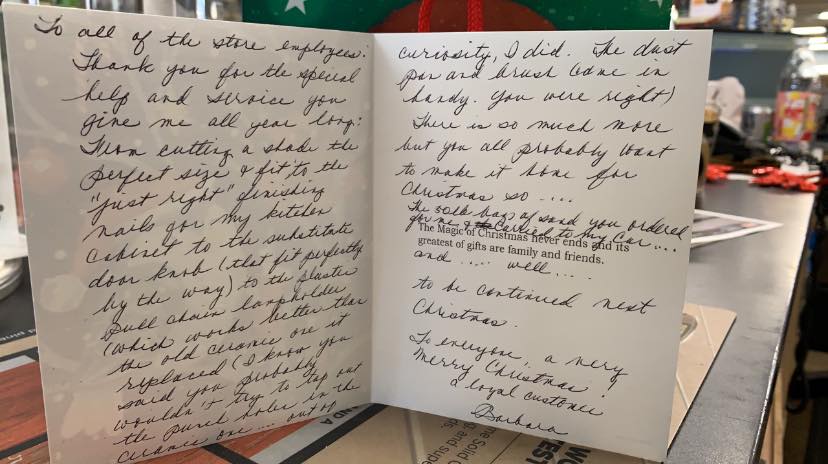 To all of the store employees:
Thank you for the special
help and service you
give me all year long:
From cutting a shade the
perfect size & fit to the
"just right" finishing
nails for my kitchen
cabinet to the substitute
door knob (that fit perfectly
by the way) to the plaster
pull chain lampholder
(which works better than
the old ceramic one it
replaced (I know you
said you probably
wouldn't try to tap out
the punch holes in the
ceramic one... out of
curiosity, I did. The dust
pan and brush came in
handy. You were right)
There is so much more
but you all probably want
to make it home for
Christmas so ....
The 50lb bags of sand you ordered
for me & carried to my car...
The Magic of Christmas never ends and its
greatest of gifts are family and friends.
and ..... well.....
to be continued next
Christmas.
To everyone, a very
Merry Christmas!
a loyal customer
Barbara